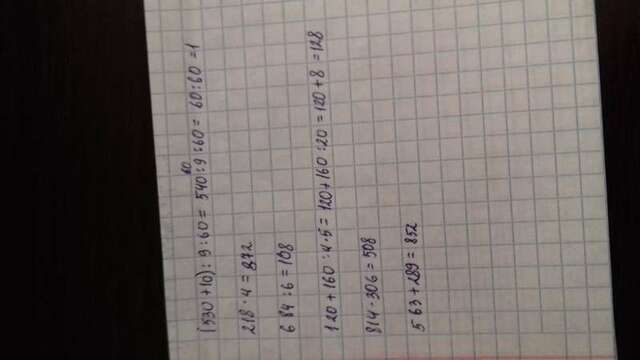 60
(530+10):9:60=540:9:60=60:60=1
218·4=872
684:6=108
120+160:4·5=120+160:20=120+8=128
814·306=508
563+289=852